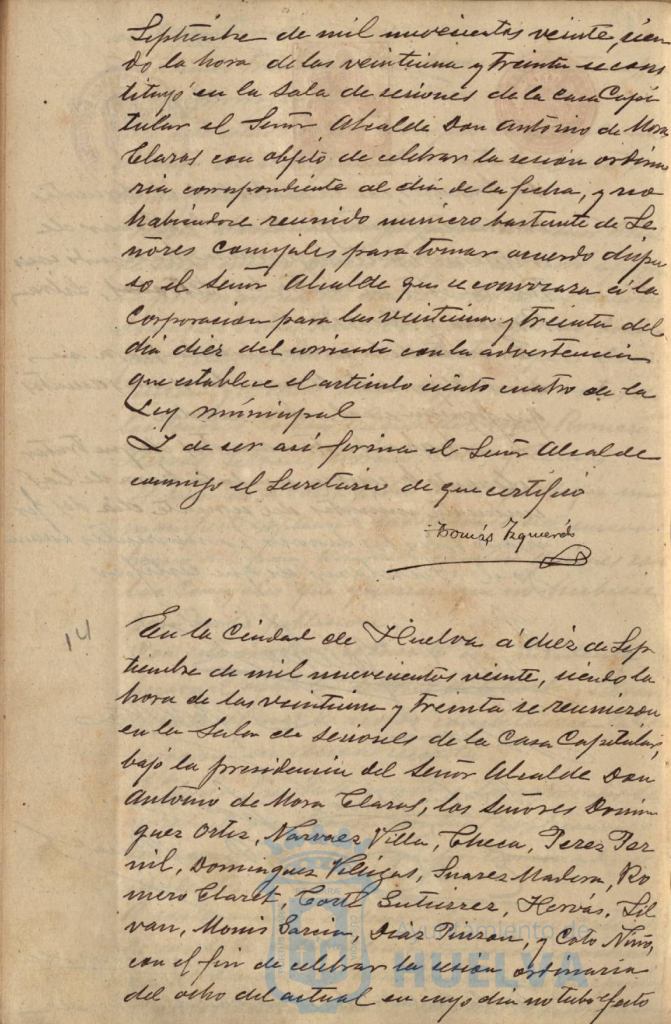 Septiembre de mil nuevecientos veinte, sien-
do la hora de las veintiuna y treinta se cons
tituyó en la Sala de sesiones de la Casa Capi-
tular el Señor Alcalde Don Antonio de Mora
Claros con objeto de celebrar la sesión ordina
ria correspondiente al dia de la fecha, y no
habiendose reunido número bastante de Se-
ñores Concejales para tomar acuerdo dispu
so el Señor Alcalde que se convocara á la
Corporacion para las veintiuna y treinta del
dia diez del corriente con la advertencia
que establece el articulo ciento cuatro de la
Ley municipal
Y de ser asi firma el Señor Alcalde
conmigo el Secretario de que certifico
Tomás Izquierdo
14
En la Ciudad de Huelva á diez de Sep-
tiembre de mil nuevecientos veinte, siendo la
hora de las veintiuna y treinta se reunieron
en la Sala de sesiones de la Casa Capitular,
bajo la presidencia del Señor Alcalde Don
Antonio de Mora Claros, los señores Domin
guez Ortiz, Narvaez Villa, Checa, Perez Per-
nil, Dominguez Villegas, Suarez Madera, Ro
mero Claret, Corté Gutierrez, Hervás, Sil-
van, Monis Garcia, Diaz Pinzon, y Coto Niño,
con el fin de celebrar la sesion ordinaria
del ocho del actual en cuyo dia no tubo efecto
Ayuntamiento de
HUELVA